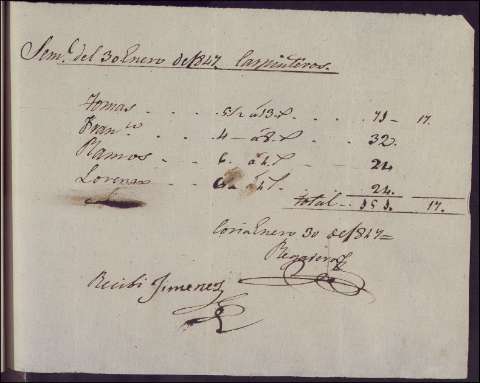 Sem.ª del 30 Enero de 1847. Carpinteros.
Tomas . . . 5½ á 13.r . . . 71 - 17.
Fran.co . . . 4 - á 8.r . . . 32.
Ramos . . . 6. á 4.r . . . 24
Lorenzo . . . 6. á 4r. . . . 24.
total . . 151. 17.
Coria Enero 30 de 1847=
Recibi Jimenez